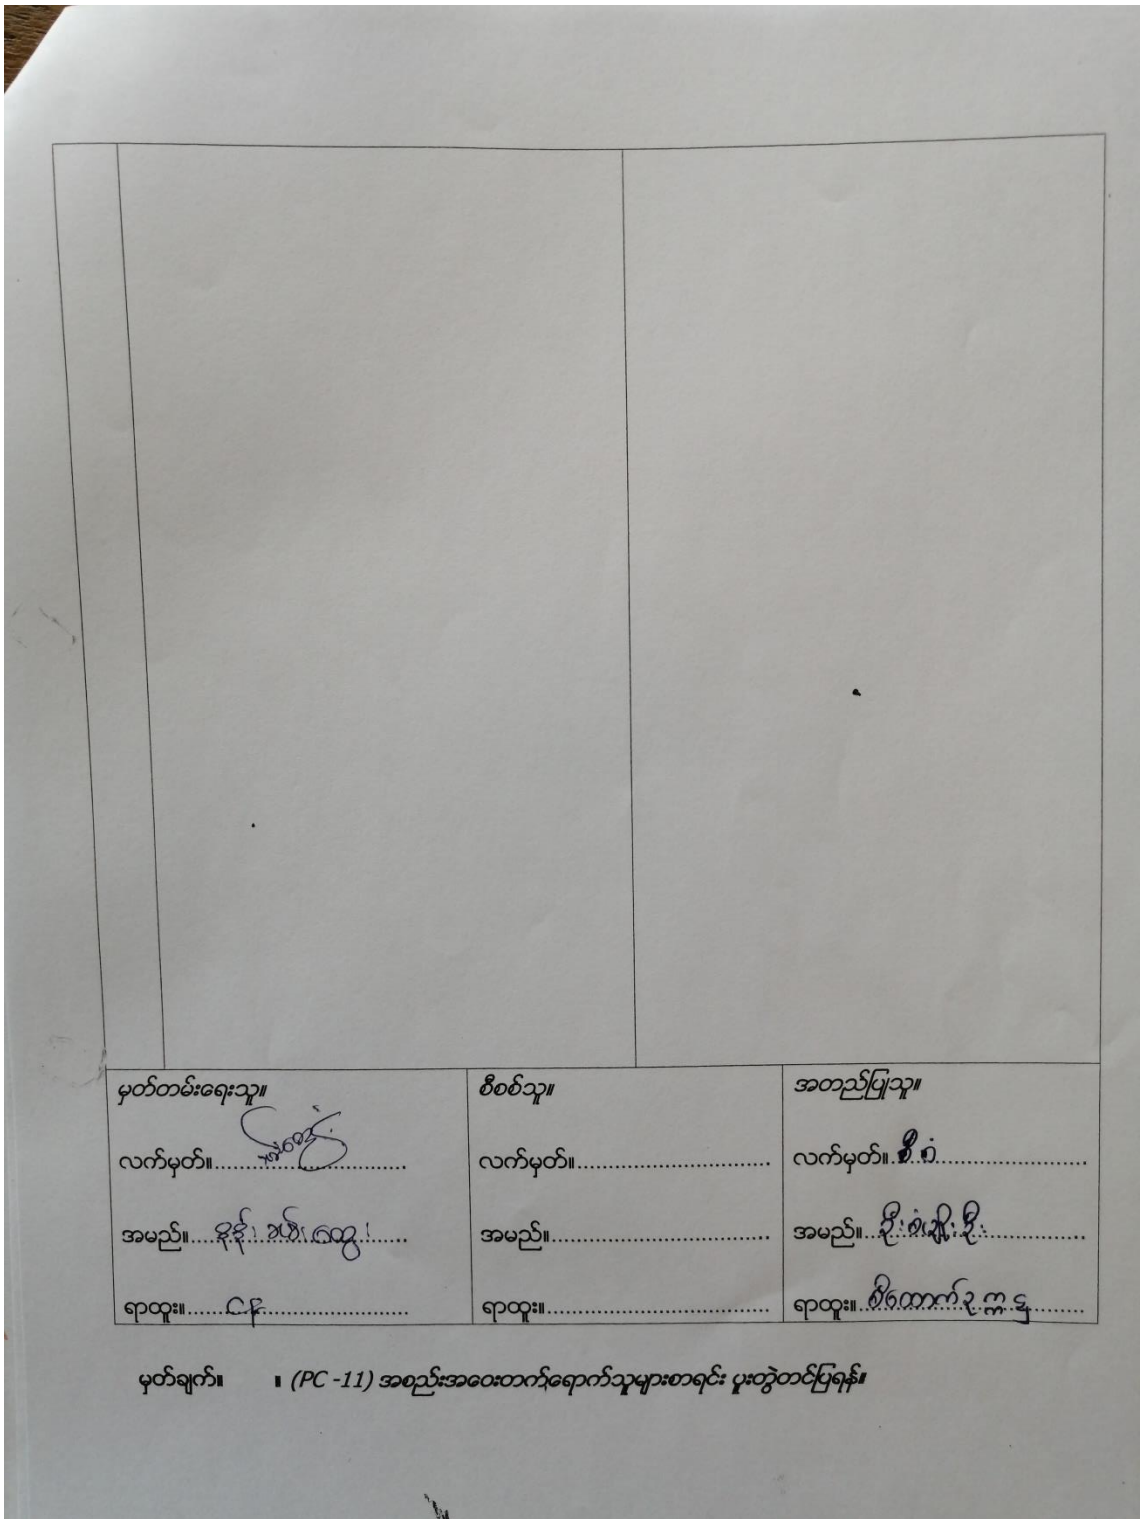 မှတ်တမ်းရေးသူ။ စီစစ်သူ။ အတည်ပြုသူ။
လက်မှတ်။.............................. လက်မှတ်။.............................. လက်မှတ်။ စီစံ
အမည်။ နန်းခမ်းထွေး အမည်။.................................. အမည်။ ဦးစံချိုးဦး
ရာထူး။ ငန ရာထူး။.................................. ရာထူး။ စပါထောက်ဥက္ကဋ္ဌ
မှတ်ချက်။ ။ (PC -11) အစည်းအဝေးတက်ရောက်သူများစာရင်း ပူးတွဲတင်ပြရန်။